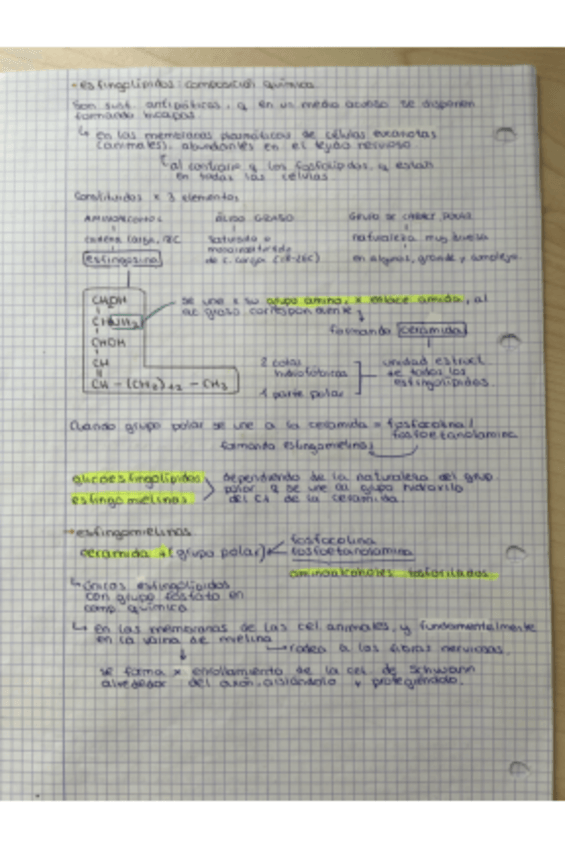 - esfingolípidos: composición química
Son sust. antipáticas, q en un medio acuoso se disponen
formando bicapas
↳ en las membranas plasmáticas de células eucariotas
(animales), abundantes en el tejido nervioso
↳ al contrario q los fosfolípidos, q están
en todas las células
Constituidos x 3 elementos
AMINOALCOHOL ÁCIDO GRASO GRUPO DE CABEZA POLAR
cadena larga, 18C saturado o naturaleza muy diversa
monoinsaturado
esfingosina de c. larga en algunos, grande y complejo
CH2OH se une x su grupo amino, x enlace amida, al
CHNH2 ác graso correspondiente
CHOH formando ceramida
CH 2 colas unidad estruct
hidrofóbicas de todos los
CH - (CH2)12 - CH3 1 parte polar esfingolípidos
Cuando grupo polar se une a la ceramida = fosfocolina /
fosfoetanolamina
formando esfingomielina
glicoesfingolípidos dependiendo de la naturaleza del grup
esfingomielinas polar q se une al grupo hidroxilo
del C1 de la ceramida
→ esfingomielinas
ceramida + (grupo polar) fosfocolina
fosfoetanolamina
aminoalcoholes fosforilados
↳ únicos esfingolípidos
con grupo fosfato en
comp química
↳ en las membranas de las cel animales, y fundamentalmente
en la vaina de mielina
→ rodea a las fibras nerviosas
se forma x enrollamiento de la cel de Schwann
alrededor del axón, aislándolo y protegiéndolo.